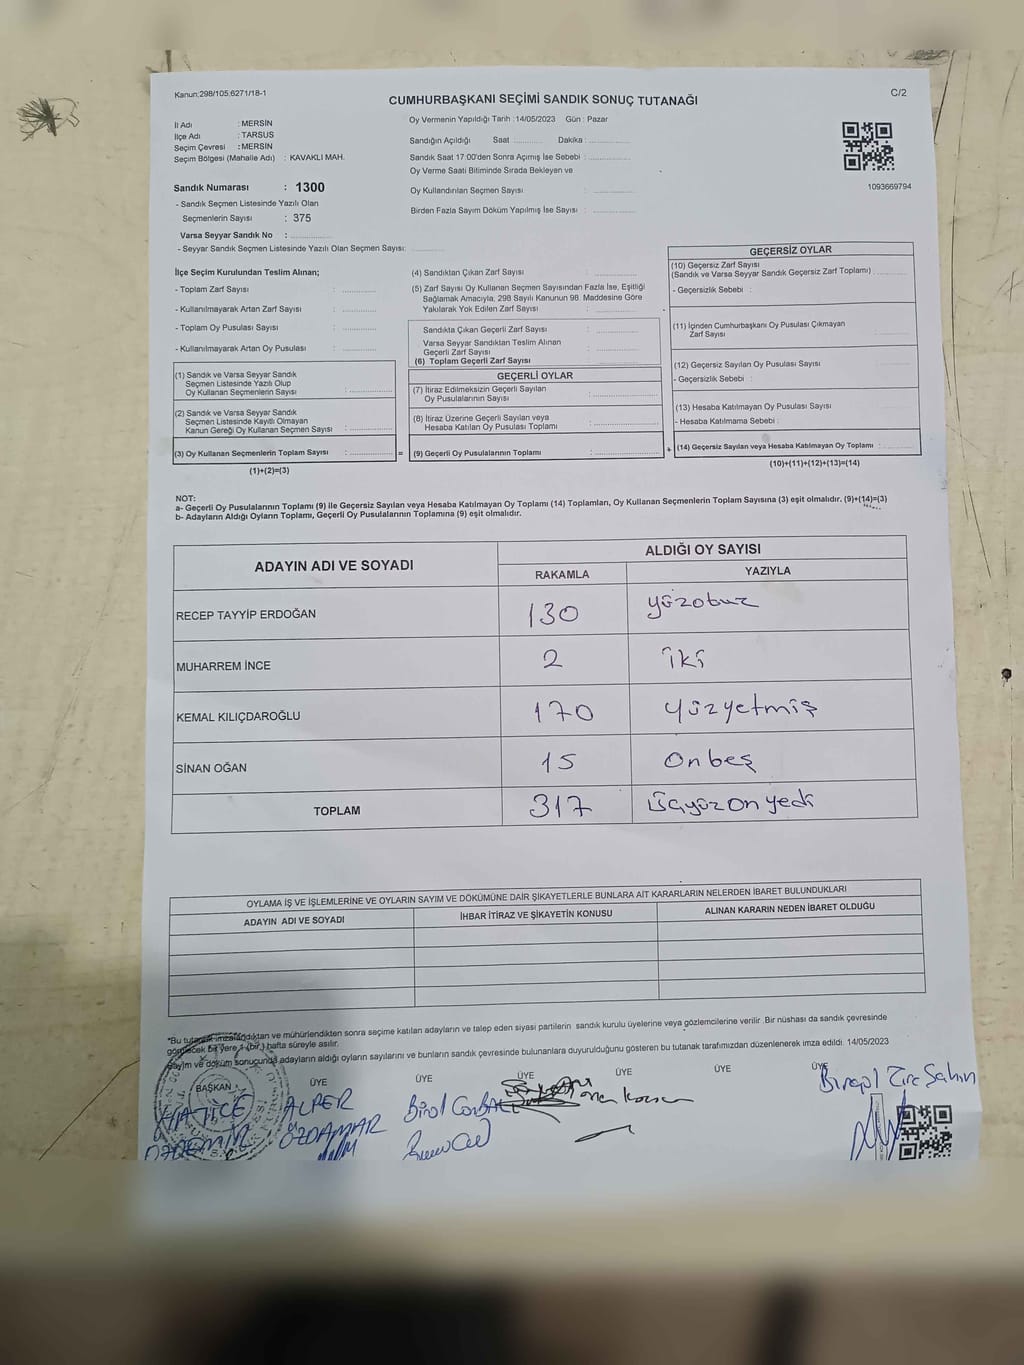 Kanun;298/105;6271/18-1
C/2
CUMHURBAŞKANI SEÇİMİ SANDIK SONUÇ TUTANAĞI
İl Adı : MERSİN
İlçe Adı : TARSUS
Seçim Çevresi : MERSİN
Seçim Bölgesi (Mahalle Adı) : KAVAKLI MAH.
Sandık Numarası : 1300
- Sandık Seçmen Listesinde Yazılı Olan
Seçmenlerin Sayısı : 375
Varsa Seyyar Sandık No : ............
- Seyyar Sandık Seçmen Listesinde Yazılı Olan Seçmen Sayısı: ............
Oy Vermenin Yapıldığı Tarih :14/05/2023 Gün : Pazar
Sandığın Açıldığı Saat ............ Dakika : ............
Sandık Saat 17:00'den Sonra Açımış İse Sebebi : ............
Oy Verme Saati Bitiminde Sırada Bekleyen ve
Oy Kullandırılan Seçmen Sayısı : ............
Birden Fazla Sayım Döküm Yapılmış İse Sayısı : ............
1093669794
İlçe Seçim Kurulundan Teslim Alınan;
- Toplam Zarf Sayısı : ............
- Kullanılmayarak Artan Zarf Sayısı : ............
- Toplam Oy Pusulası Sayısı : ............
- Kullanılmayarak Artan Oy Pusulası : ............
(1) Sandık ve Varsa Seyyar Sandık
Seçmen Listesinde Yazılı Olup
Oy Kullanan Seçmenlerin Sayısı : ............
(2) Sandık ve Varsa Seyyar Sandık
Seçmen Listesinde Kayıtlı Olmayan
Kanun Gereği Oy Kullanan Seçmen Sayısı : ............
(3) Oy Kullanan Seçmenlerin Toplam Sayısı : ............ =
(1)+(2)=(3)
(4) Sandıktan Çıkan Zarf Sayısı : ............
(5) Zarf Sayısı Oy Kullanan Seçmen Sayısından Fazla İse, Eşitliği
Sağlamak Amacıyla, 298 Sayılı Kanunun 98. Maddesine Göre
Yakılarak Yok Edilen Zarf Sayısı : ............
Sandıkta Çıkan Geçerli Zarf Sayısı : ............
Varsa Seyyar Sandıktan Teslim Alınan
Geçerli Zarf Sayısı : ............
(6) Toplam Geçerli Zarf Sayısı : ............
GEÇERLİ OYLAR
(7) İtiraz Edilmeksizin Geçerli Sayılan
Oy Pusulalarının Sayısı : ............
(8) İtiraz Üzerine Geçerli Sayılan veya
Hesaba Katılan Oy Pusulası Toplamı : ............
(9) Geçerli Oy Pusulalarının Toplamı : ............ +
GEÇERSİZ OYLAR
(10) Geçersiz Zarf Sayısı
(Sandık ve Varsa Seyyar Sandık Geçersiz Zarf Toplamı) ............
- Geçersizlik Sebebi :
(11) İçinden Cumhurbaşkanı Oy Pusulası Çıkmayan
Zarf Sayısı ............
(12) Geçersiz Sayılan Oy Pusulası Sayısı
- Geçersizlik Sebebi :
(13) Hesaba Katılmayan Oy Pusulası Sayısı
- Hesaba Katılmama Sebebi :
(14) Geçersiz Sayılan veya Hesaba Katılmayan Oy Toplamı : ............
(10)+(11)+(12)+(13)=(14)
NOT:
a- Geçerli Oy Pusulalarının Toplamı (9) ile Geçersiz Sayılan veya Hesaba Katılmayan Oy Toplamı (14) Toplamları, Oy Kullanan Seçmenlerin Toplam Sayısına (3) eşit olmalıdır. (9)+(14)=(3)
b- Adayların Aldığı Oyların Toplamı, Geçerli Oy Pusulalarının Toplamına (9) eşit olmalıdır.
ADAYIN ADI VE SOYADI
ALDIĞI OY SAYISI
RAKAMLA YAZIYLA
RECEP TAYYİP ERDOĞAN 130 yüzotuz
MUHARREM İNCE 2 iki
KEMAL KILIÇDAROĞLU 170 yüzyetmiş
SİNAN OĞAN 15 Onbeş
TOPLAM 317 üçyüzonyedi
OYLAMA İŞ VE İŞLEMLERİNE VE OYLARIN SAYIM VE DÖKÜMÜNE DAİR ŞİKAYETLERLE BUNLARA AİT KARARLARIN NELERDEN İBARET BULUNDUKLARI
ADAYIN ADI VE SOYADI İHBAR İTİRAZ VE ŞİKAYETİN KONUSU ALINAN KARARIN NEDEN İBARET OLDUĞU
"Bu tutanak imzalandıktan ve mühürlendikten sonra seçime katılan adayların ve talep eden siyasi partilerin sandık kurulu üyelerine veya gözlemcilerine verilir .Bir nüshası da sandık çevresinde
görülecek bir yere 1 (bir ) hafta süreyle asılır.
Sayım ve döküm sonucunda adayların aldığı oyların sayılarını ve bunların sandık çevresinde bulunanlara duyurulduğunu gösteren bu tutanak tarafımızdan düzenlenerek imza edildi. 14/05/2023
BAŞKAN ÜYE ÜYE ÜYE ÜYE ÜYE ÜYE
HATİCE ALPER Birol
ÖZDEMİR ÖZDAMAR
Şahin